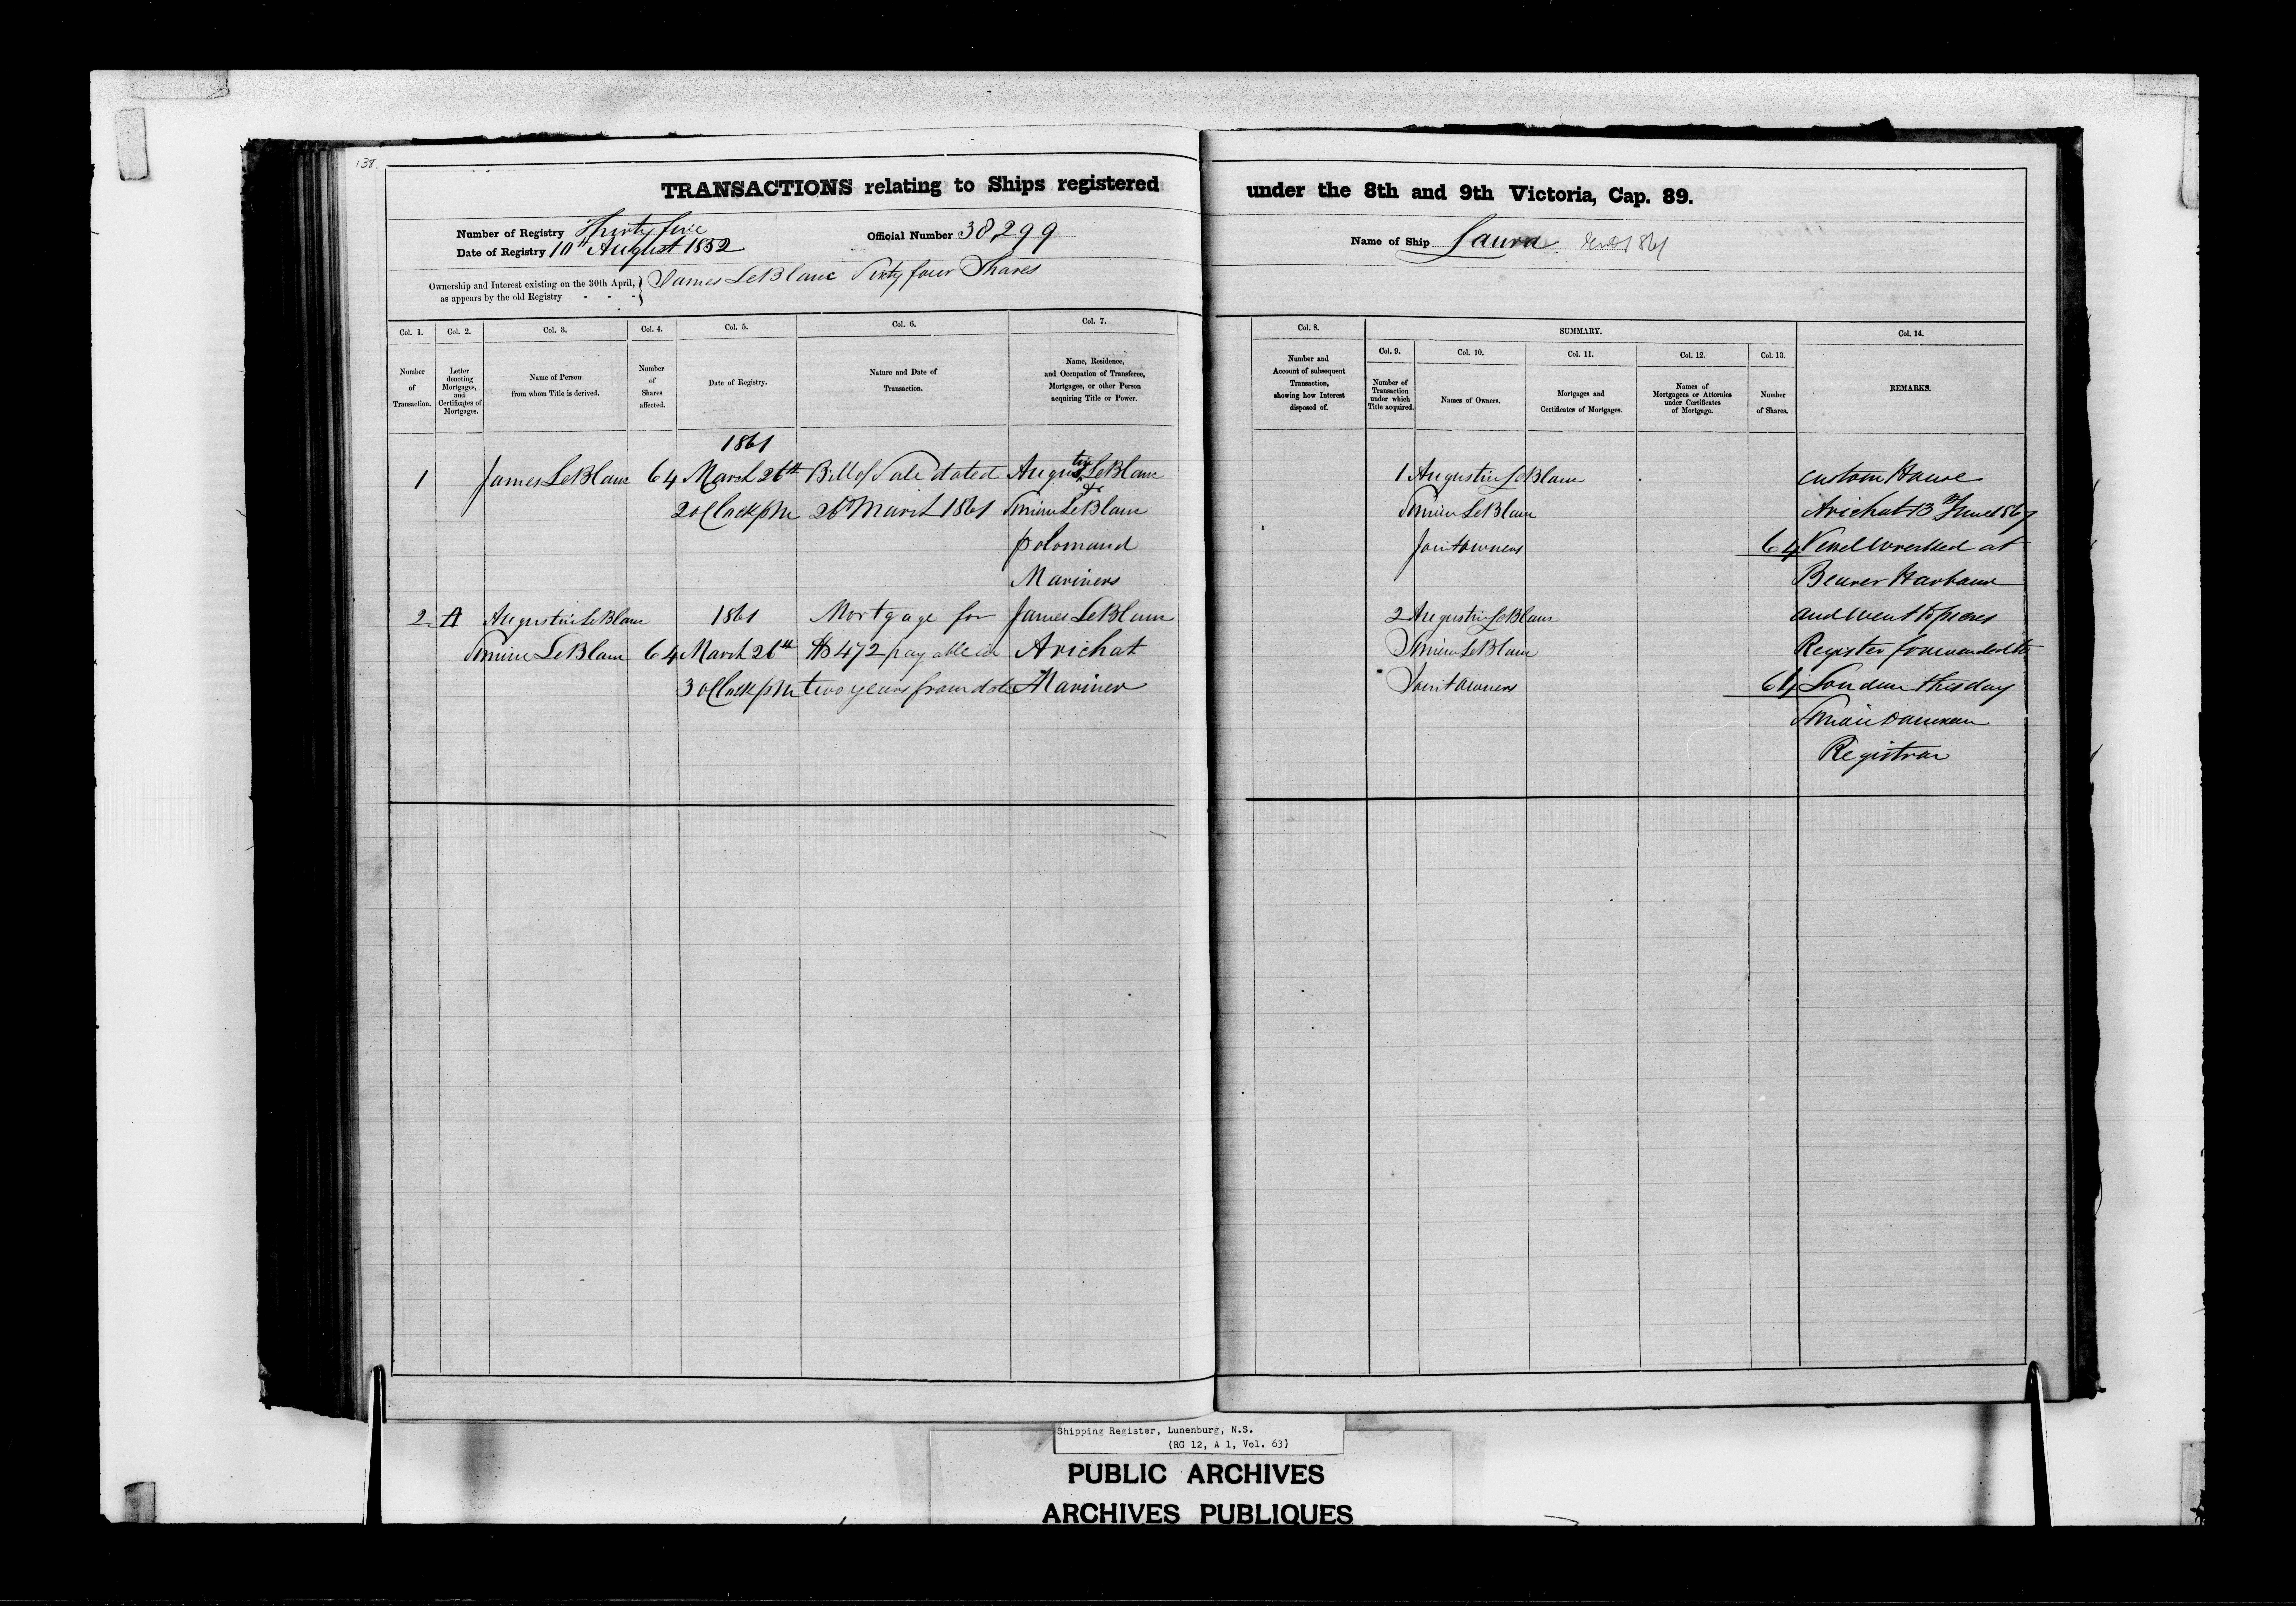 138.
TRANSACTIONS relating to Ships registered under the 8th and 9th Victoria, Cap. 89.
Number of Registry Thirty five
Date of Registry 10th August 1852
Official Number 38,299
Name of Ship Laura
Ownership and Interest existing on the 30th April,
as appears by the old Registry - - -
James LeBlanc Sixty four Shares
Col. 1. Col. 2. Col. 3. Col. 4. Col. 5. Col. 6. Col. 7. Col. 8. SUMMARY. Col. 14.
Col. 9. Col. 10. Col. 11. Col. 12. Col. 13.
Number
of
Transaction.
Letter
denoting
Mortgages,
and
Certificates of
Mortgages.
Name of Person
from whom Title is derived.
Number
of
Shares
affected.
Date of Registry.
Nature and Date of
Transaction.
Name, Residence,
and Occupation of Transferee,
Mortgagee, or other Person
acquiring Title or Power.
Number and
Account of subsequent
Transaction,
showing how Interest
disposed of.
Number of
Transaction
under which
Title acquired.
Names of Owners.
Mortgages and
Certificates of Mortgages.
Names of
Mortgagees or Attornies
under Certificates
of Mortgage.
Number
of Shares.
REMARKS.
1861
1 James LeBlanc 64 March 26th Bill of Sale dated Augustin LeBlanc
2 oClock pm 26 March 1861 LeBlanc
Mariners
2 A Augustin LeBlanc 1861 Mortgage for James LeBlanc
LeBlanc 64 March 26th $472 payable in Arichat
3 oClock pm two years from date Mariner
1 Augustin LeBlanc
LeBlanc
Joint owners 64
2 Augustin LeBlanc
LeBlanc
Joint owners 64
Custom House
Arichat 13th June 1867
Vessel wrecked at
Beaver Harbour
and went to pieces
Register forwarded to
London this day
Registrar
Shipping Register, Lunenburg, N.S.
(RG 12, A 1, Vol. 63)
PUBLIC ARCHIVES
ARCHIVES PUBLIQUES